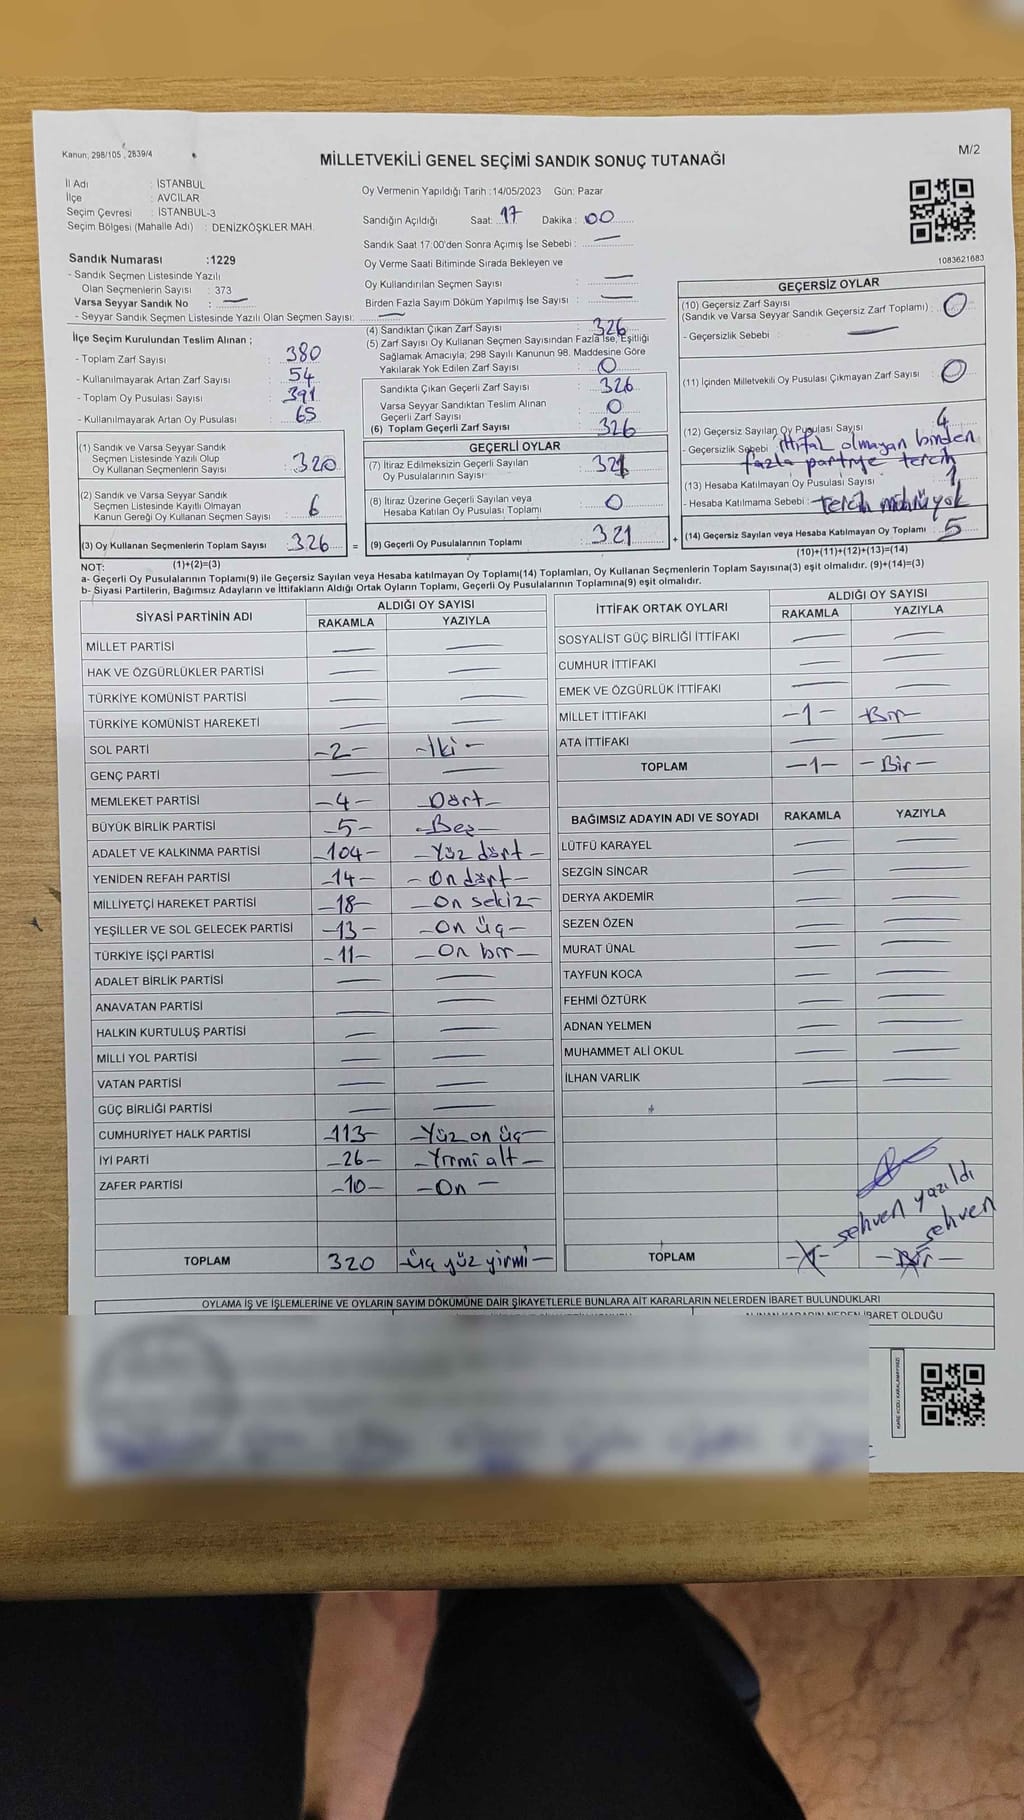 Kanun; 298/105 , 2839/4
MİLLETVEKİLİ GENEL SEÇİMİ SANDIK SONUÇ TUTANAĞI
M/2
İl Adı : İSTANBUL
İlçe : AVCILAR
Seçim Çevresi : İSTANBUL-3
Seçim Bölgesi (Mahalle Adı) : DENİZKÖŞKLER MAH.
Oy Vermenin Yapıldığı Tarih :14/05/2023 Gün: Pazar
Sandığın Açıldığı Saat: 17 Dakika : 00
Sandık Saat 17:00'den Sonra Açımış İse Sebebi : —
Sandık Numarası :1229
- Sandık Seçmen Listesinde Yazılı
Olan Seçmenlerin Sayısı : 373
Varsa Seyyar Sandık No : —
- Seyyar Sandık Seçmen Listesinde Yazılı Olan Seçmen Sayısı: —
Oy Verme Saati Bitiminde Sırada Bekleyen ve
Oy Kullandırılan Seçmen Sayısı : —
Birden Fazla Sayım Döküm Yapılmış İse Sayısı : —
1083621683
İlçe Seçim Kurulundan Teslim Alınan ;
- Toplam Zarf Sayısı : 380
- Kullanılmayarak Artan Zarf Sayısı : 54
- Toplam Oy Pusulası Sayısı : 391
- Kullanılmayarak Artan Oy Pusulası : 65
(1) Sandık ve Varsa Seyyar Sandık
Seçmen Listesinde Yazılı Olup
Oy Kullanan Seçmenlerin Sayısı : 320
(2) Sandık ve Varsa Seyyar Sandık
Seçmen Listesinde Kayıtlı Olmayan
Kanun Gereği Oy Kullanan Seçmen Sayısı : 6
(3) Oy Kullanan Seçmenlerin Toplam Sayısı : 326 =
(4) Sandıktan Çıkan Zarf Sayısı : 326
(5) Zarf Sayısı Oy Kullanan Seçmen Sayısından Fazla İse, Eşitliği
Sağlamak Amacıyla, 298 Sayılı Kanunun 98. Maddesine Göre
Yakılarak Yok Edilen Zarf Sayısı : 0
Sandıkta Çıkan Geçerli Zarf Sayısı : 326
Varsa Seyyar Sandıktan Teslim Alınan
Geçerli Zarf Sayısı : 0
(6) Toplam Geçerli Zarf Sayısı : 326
GEÇERLİ OYLAR
(7) İtiraz Edilmeksizin Geçerli Sayılan
Oy Pusulalarının Sayısı : 321
(8) İtiraz Üzerine Geçerli Sayılan veya
Hesaba Katılan Oy Pusulası Toplamı : 0
(9) Geçerli Oy Pusulalarının Toplamı : 321 +
GEÇERSİZ OYLAR
(10) Geçersiz Zarf Sayısı
(Sandık ve Varsa Seyyar Sandık Geçersiz Zarf Toplamı) : 0
- Geçersizlik Sebebi : —
(11) İçinden Milletvekili Oy Pusulası Çıkmayan Zarf Sayısı : 0
(12) Geçersiz Sayılan Oy Pusulası Sayısı : 4
- Geçersizlik Sebebi : ittifak olmayan birden
fazla partiye tercih
(13) Hesaba Katılmayan Oy Pusulası Sayısı : 1
- Hesaba Katılmama Sebebi : tercih mührü yok
(14) Geçersiz Sayılan veya Hesaba Katılmayan Oy Toplamı : 5
NOT: (1)+(2)=(3)
(10)+(11)+(12)+(13)=(14)
a- Geçerli Oy Pusulalarının Toplamı(9) ile Geçersiz Sayılan veya Hesaba katılmayan Oy Toplamı(14) Toplamları, Oy Kullanan Seçmenlerin Toplam Sayısına(3) eşit olmalıdır. (9)+(14)=(3)
b- Siyasi Partilerin, Bağımsız Adayların ve İttifakların Aldığı Ortak Oyların Toplamı, Geçerli Oy Pusulalarının Toplamına(9) eşit olmalıdır.
SİYASİ PARTİNİN ADI ALDIĞI OY SAYISI
RAKAMLA YAZIYLA
MİLLET PARTİSİ — —
HAK VE ÖZGÜRLÜKLER PARTİSİ — —
TÜRKİYE KOMÜNİST PARTİSİ — —
TÜRKİYE KOMÜNİST HAREKETİ — —
SOL PARTİ -2- -İki-
GENÇ PARTİ — —
MEMLEKET PARTİSİ -4- Dört-
BÜYÜK BİRLİK PARTİSİ -5- -Beş-
ADALET VE KALKINMA PARTİSİ -104- -Yüz dört-
YENİDEN REFAH PARTİSİ -14- -On dört-
MİLLİYETÇİ HAREKET PARTİSİ -18- -On sekiz-
YEŞİLLER VE SOL GELECEK PARTİSİ -13- -On üç-
TÜRKİYE İŞÇİ PARTİSİ -11- -On bir-
ADALET BİRLİK PARTİSİ — —
ANAVATAN PARTİSİ — —
HALKIN KURTULUŞ PARTİSİ — —
MİLLİ YOL PARTİSİ — —
VATAN PARTİSİ — —
GÜÇ BİRLİĞİ PARTİSİ — —
CUMHURİYET HALK PARTİSİ -113- -Yüz on üç-
İYİ PARTİ -26- -Yirmi alt-
ZAFER PARTİSİ -10- -On-
TOPLAM 320 -üç yüz yirmi-
İTTİFAK ORTAK OYLARI ALDIĞI OY SAYISI
RAKAMLA YAZIYLA
SOSYALİST GÜÇ BİRLİĞİ İTTİFAKI — —
CUMHUR İTTİFAKI — —
EMEK VE ÖZGÜRLÜK İTTİFAKI — —
MİLLET İTTİFAKI -1- -Bir-
ATA İTTİFAKI — —
TOPLAM -1- -Bir-
BAĞIMSIZ ADAYIN ADI VE SOYADI RAKAMLA YAZIYLA
LÜTFÜ KARAYEL — —
SEZGİN SİNCAR — —
DERYA AKDEMİR — —
SEZEN ÖZEN — —
MURAT ÜNAL — —
TAYFUN KOCA — —
FEHMİ ÖZTÜRK — —
ADNAN YELMEN — —
MUHAMMET ALİ OKUL — —
İLHAN VARLIK — —
sehven yazıldı
sehven
TOPLAM -1- -Bir-
OYLAMA İŞ VE İŞLEMLERİNE VE OYLARIN SAYIM DÖKÜMÜNE DAİR ŞİKAYETLERLE BUNLARA AİT KARARLARIN NELERDEN İBARET BULUNDUKLARI
ALINAN KARARIN NEDEN İBARET OLDUĞU
KARE KODU KARALAMAYINIZ!